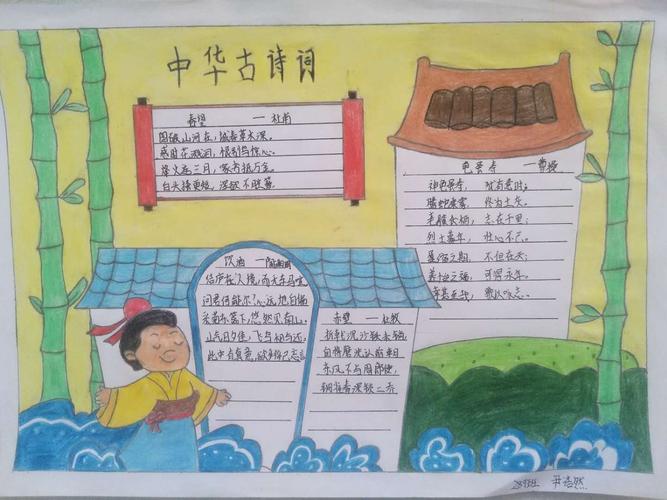 中华古诗词
春望 — 杜甫
国破山河在，城春草木深。
感时花溅泪，恨别鸟惊心。
烽火连三月，家书抵万金。
白头搔更短，浑欲不胜簪。
龟虽寿 — 曹操
神龟虽寿，犹有竟时；
腾蛇乘雾，终为土灰。
老骥伏枥，志在千里；
烈士暮年，壮心不已。
盈缩之期，不但在天；
养怡之福，可得永年。
幸甚至哉，歌以咏志。
饮酒 — 陶渊明
结庐在人境，而无车马喧
问君何能尔？心远地自偏
采菊东篱下，悠然见南山。
山气日夕佳，飞鸟相与还，
此中有真意，欲辨已忘言
赤壁 — 杜牧
折戟沉沙铁未销
自将磨洗认前朝
东风不与周郎便，
铜雀春深锁二乔